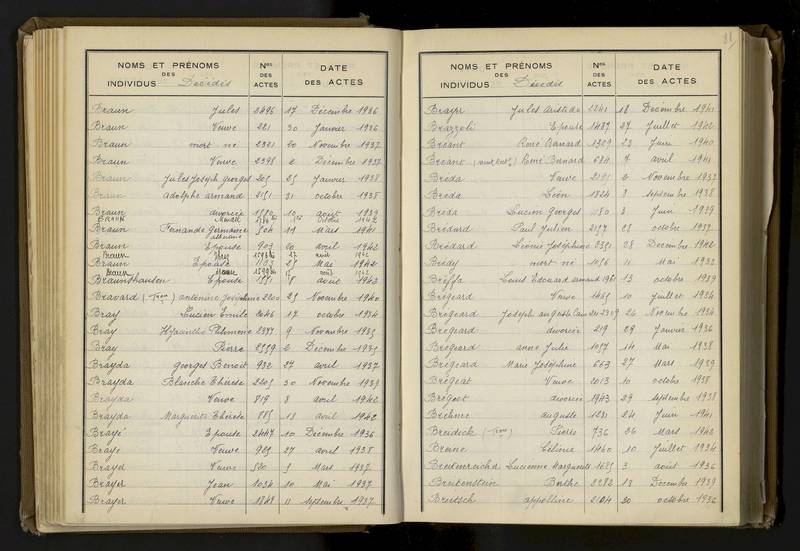 NOMS ET PRÉNOMS
DES
INDIVIDUS Décédés
Nos
DES
ACTES
DATE
DES ACTES
Braun Jules 2496 17 Décembre 1936
Braun Veuve 221 30 Janvier 1936
Braun mort né 2321 20 Novembre 1937
Braun Veuve 2398 2 Décembre 1937
Braun Jules Joseph georges 205 25 Janvier 1938
Braun adolphe armand 2151 31 octobre 1938
Braun divorcée 10 août 1939
BRAUN 1942
Braun Fernande Germaine 504 11 Mars 1941
Braun Epouse 903 20 avril 1942
Braun 27 avril 1942
Braun Epouse 1133 27 Mai 1942
Braun 1942
Braunshausen Epouse 8 août 1943
Bravard (Tron) antonine Joséphine 2200 25 Novembre 1940
Bray Lucien Emile 2046 17 octobre 1934
Bray Hyacinthe Philomène 2377 9 Novembre 1935
Bray Pierre 2559 2 Décembre 1935
Brayda georges Benoit 932 27 avril 1937
Brayda Blanche Thérèse 2205 30 Novembre 1939
Brayda Veuve 819 8 avril 1942
Brayda Marguerite Thérèse 885 18 avril 1942
Brayé Epouse 2447 10 Décembre 1936
Braye Veuve 929 27 avril 1938
Brayd Veuve 520 5 Mars 1937
Brayer Jean 1034 10 Mai 1937
Brayer Veuve 1848 11 septembre 1937
81
NOMS ET PRÉNOMS
DES
INDIVIDUS Décédés
Nos
DES
ACTES
DATE
DES ACTES
Brayr Jules Aristide 2241 18 Décembre 1941
Brazzoli Epouse 1487 27 Juillet 1942
Bréant René Bernard 1309 23 Juin 1940
Bréant René Bernard 634 7 avril 1941
Bréda Veuve 2191 2 Novembre 1933
Bréda Léon 1824 3 septembre 1938
Breda Lucien Georges 1180 3 Juin 1939
Brédard Paul Julien 2157 28 octobre 1937
Brédard Léonie Joséphine 2351 28 Décembre 1942
Brédy mort né 1036 11 Mai 1933
Breffa Louis Edouard armand 1961 13 octobre 1939
Brégeard Veuve 1465 10 Juillet 1934
Brégeard Joseph auguste 2309 26 Novembre 1934
Brégeard divorcée 219 29 Janvier 1936
Brégeard anne Julie 1057 14 Mai 1938
Brégeard Marie Joséphine 663 27 Mars 1939
Brégeat Veuve 2013 10 octobre 1938
Brégeot divorcé 1943 29 septembre 1938
Bréhme auguste 1231 24 Juin 1941
Breidick (Tron) Pierre 736 26 Mars 1942
Breme Célinie 1460 10 Juillet 1934
Breitenreichd Lucienne Marguerite 1625 3 août 1936
Breitenstein Berthe 2282 13 Décembre 1939
Breitsch appolline 2104 30 octobre 1936